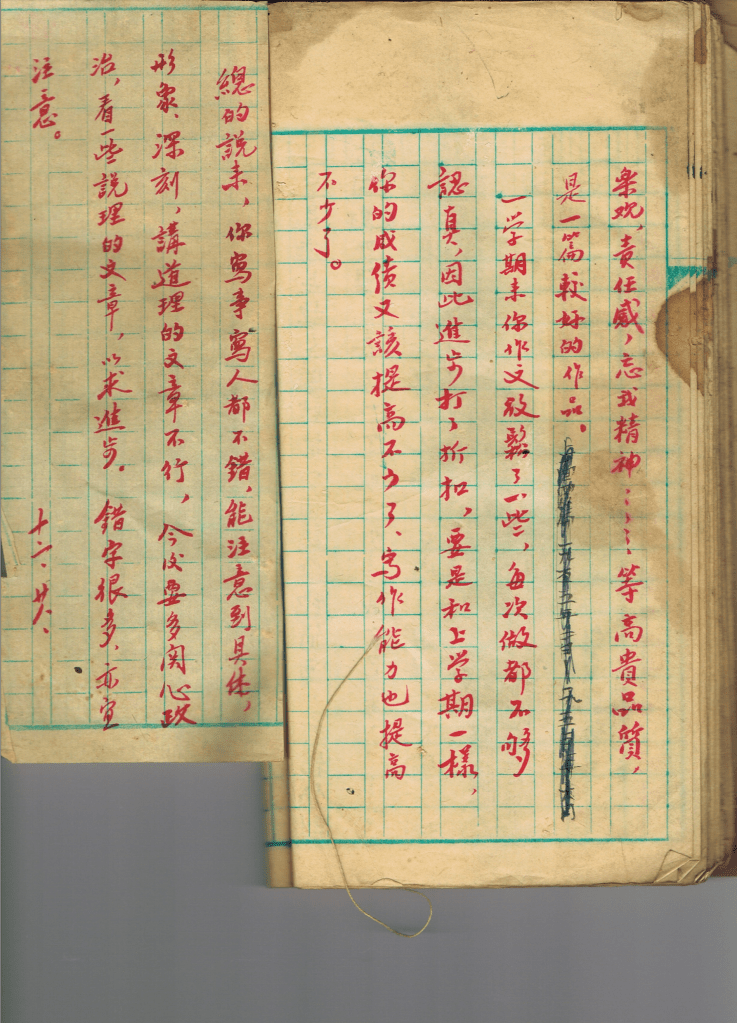 樂观，責任感，忘我精神……等高貴品質，
是一篇較好的作品。
一学期来你作文放鬆了一些，每次做都不够
認真，因此進步打了折扣，要是和上学期一樣，
你的成績又該提高不少了、寫作能力也提高
不少了。
總的說来，你寫事寫人都不錯，能注意到具体，
形象、深刻，講道理的文章不行，今后要多関心政
治，看一些說理的文章，以求進步。錯字很多、亦宜
注意。
十二、廿八、